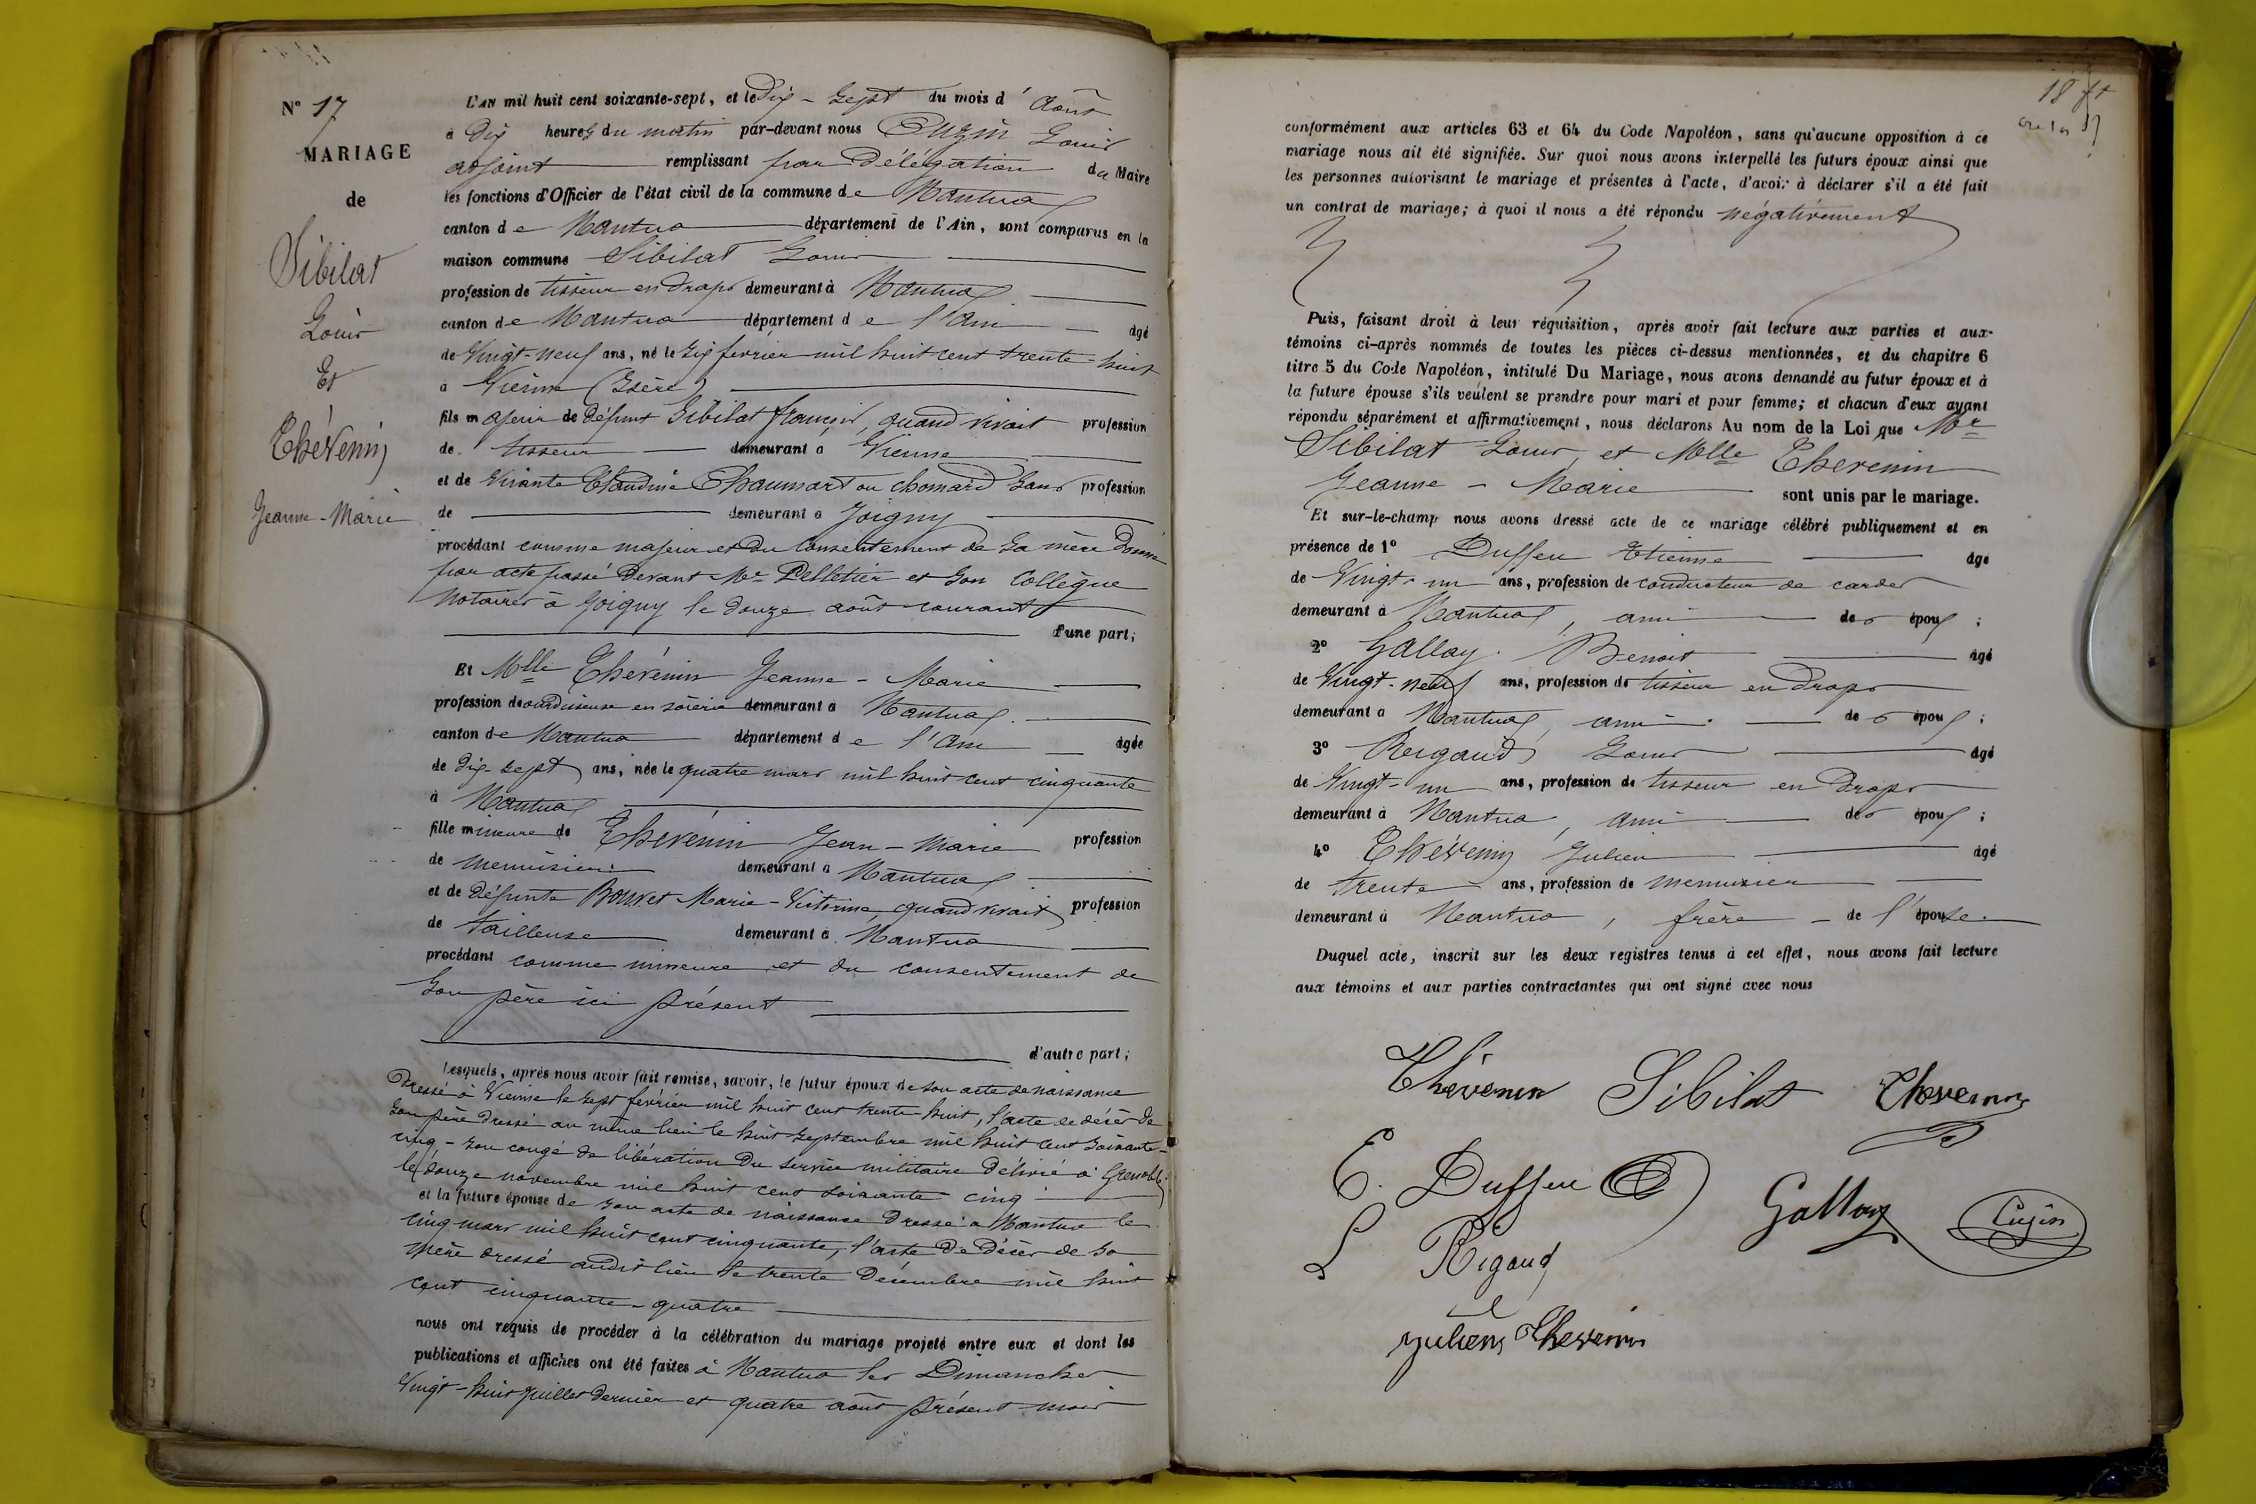 N° 17
MARIAGE
de
Sibilat
Louis
Et
Thévenin
Jeanne-Marie
L'AN mil huit cent soixante-sept, et le Dix-Sept du mois d'Août
à Dix heures du matin par-devant nous Cuzin Louis
adjoint remplissant par Délégation du Maire
les fonctions d'Officier de l'état civil de la commune de Nantua
canton de Nantua département de l'Ain, sont comparus en la
maison commune Sibilat Louis
profession de tisseur en draps demeurant à Nantua
canton de Nantua département de l'Ain âgé
de Vingt-neuf ans, né le six février mil huit cent trente-huit
à Vienne (Isère)
fils majeur de défunt Sibilat François, quand vivait profession
de tisseur demeurant à Vienne
et de vivante Claudine Chaumart ou Chomard Sans profession
de demeurant à Joigny
procédant comme majeur et du consentement de sa mère donné
par acte passé devant Me Pelletier et son Collègue
Notaires à Joigny le douze août courant
d'une part;
Et Mlle Thévenin Jeanne-Marie
profession de ourdisseuse en soierie demeurant à Nantua
canton de Nantua département de l'Ain âgée
de dix-sept ans, née le quatre mars mil huit cent cinquante
à Nantua
fille mineure de Thévenin Jean-Marie profession
de menuisier demeurant à Nantua
et de défunte Bouvet Marie-Victorine, quand vivait profession
de tailleuse demeurant à Nantua
procédant comme mineure et du consentement de
Son père ici présent
d'autre part;
Lesquels, après nous avoir fait remise, savoir, le futur époux de son acte de naissance
Dressé à Vienne le sept février mil huit cent trente-huit, l'acte de décès de
Son père dressé au même lieu le huit septembre mil huit cent soixante-
cinq - son congé de libération du service militaire délivré à Grenoble
le douze novembre mil huit cent soixante cinq
et la future épouse de son acte de naissance dressé à Nantua le
cinq mars mil huit cent cinquante, l'acte de décès de sa
mère dressé audit lieu le trente décembre mil huit
cent cinquante-quatre
nous ont requis de procéder à la célébration du mariage projeté entre eux et dont les
publications et affiches ont été faites à Nantua les Dimanches
Vingt-huit juillet dernier et quatre août présent mois
18
conformément aux articles 63 et 64 du Code Napoléon, sans qu'aucune opposition à ce
mariage nous ait été signifiée. Sur quoi nous avons interpellé les futurs époux ainsi que
les personnes autorisant le mariage et présentes à l'acte, d'avoir à déclarer s'il a été fait
un contrat de mariage; à quoi il nous a été répondu négativement
Puis, faisant droit à leur réquisition, après avoir fait lecture aux parties et aux-
témoins ci-après nommés de toutes les pièces ci-dessus mentionnées, et du chapitre 6
titre 5 du Code Napoléon, intitulé Du Mariage, nous avons demandé au futur époux et à
la future épouse s'ils veulent se prendre pour mari et pour femme; et chacun d'eux ayant
répondu séparément et affirmativement, nous déclarons Au nom de la Loi que Mr
Sibilat Louis, et Mlle Thevenin
Jeanne-Marie sont unis par le mariage.
Et sur-le-champ nous avons dressé acte de ce mariage célébré publiquement et en
présence de 1° Duffeu Etienne âgé
de Vingt-un ans, profession de conducteur de cardes
demeurant à Nantua, ami des époux;
2° Gallay Benoit âgé
de Vingt-neuf ans, profession de tisseur en draps
demeurant à Nantua, ami des époux;
3° Rigaud Louis âgé
de Vingt-un ans, profession de tisseur en draps
demeurant à Nantua, ami des époux;
4° Thévenin Julien âgé
de trente ans, profession de menuisier
demeurant à Nantua, frère de l'épouse.
Duquel acte, inscrit sur les deux registres tenus à cet effet, nous avons fait lecture
aux témoins et aux parties contractantes qui ont signé avec nous
Thévenin Sibilat Thevenin
E. Duffeu Gallay Cuzin
L Rigaud
Julien Thevenin